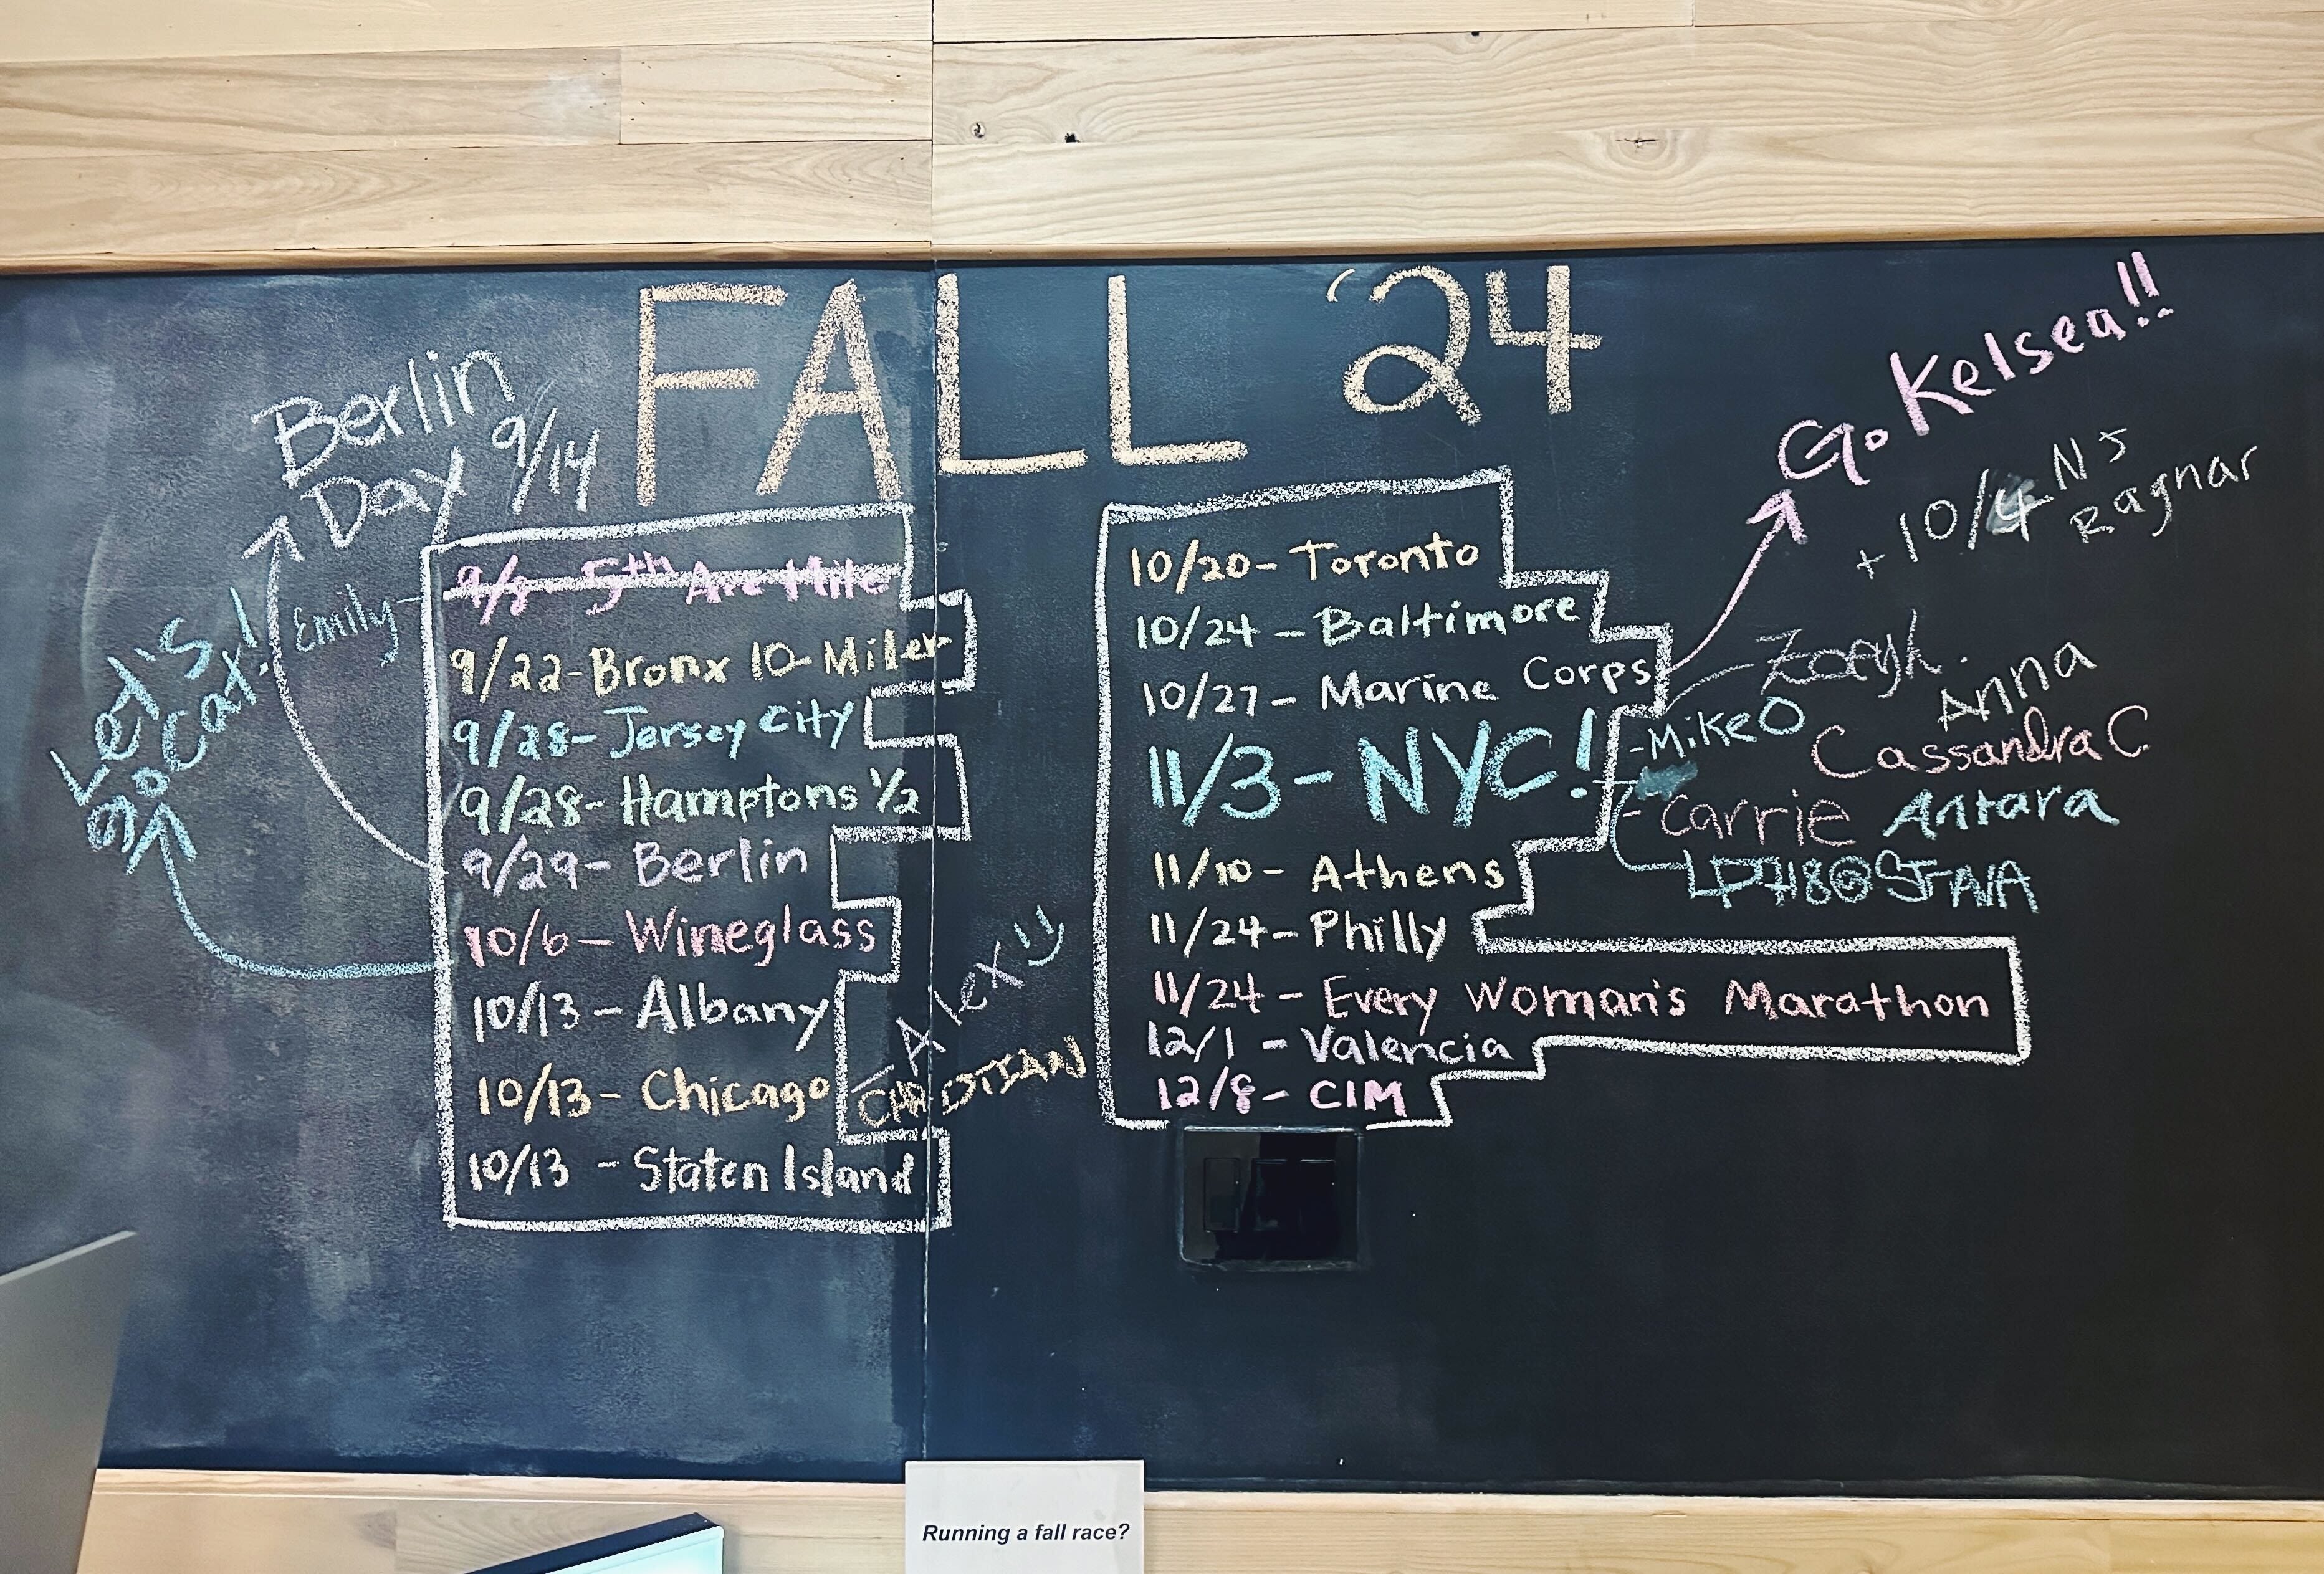 FALL '24
Berlin
Day 9/14
Emily-
Let's
go Cat!
9/8-5th Ave Mile
9/22-Bronx 10-Miler
9/28-Jersey City
9/28-Hamptons ½
9/29-Berlin
10/6-Wineglass
10/13-Albany
10/13-Chicago
10/13-Staten Island
-Alex
CHRISTIAN
10/20-Toronto
10/24-Baltimore
10/27-Marine Corps
11/3-NYC!
11/10-Athens
11/24-Philly
11/24-Every Woman's Marathon
12/1-Valencia
12/8-CIM
Go Kelsea!!
+ 10/4 NJ
Ragnar
-Mike O
Anna
Cassandra C
-Carrie
Antara
Running a fall race?